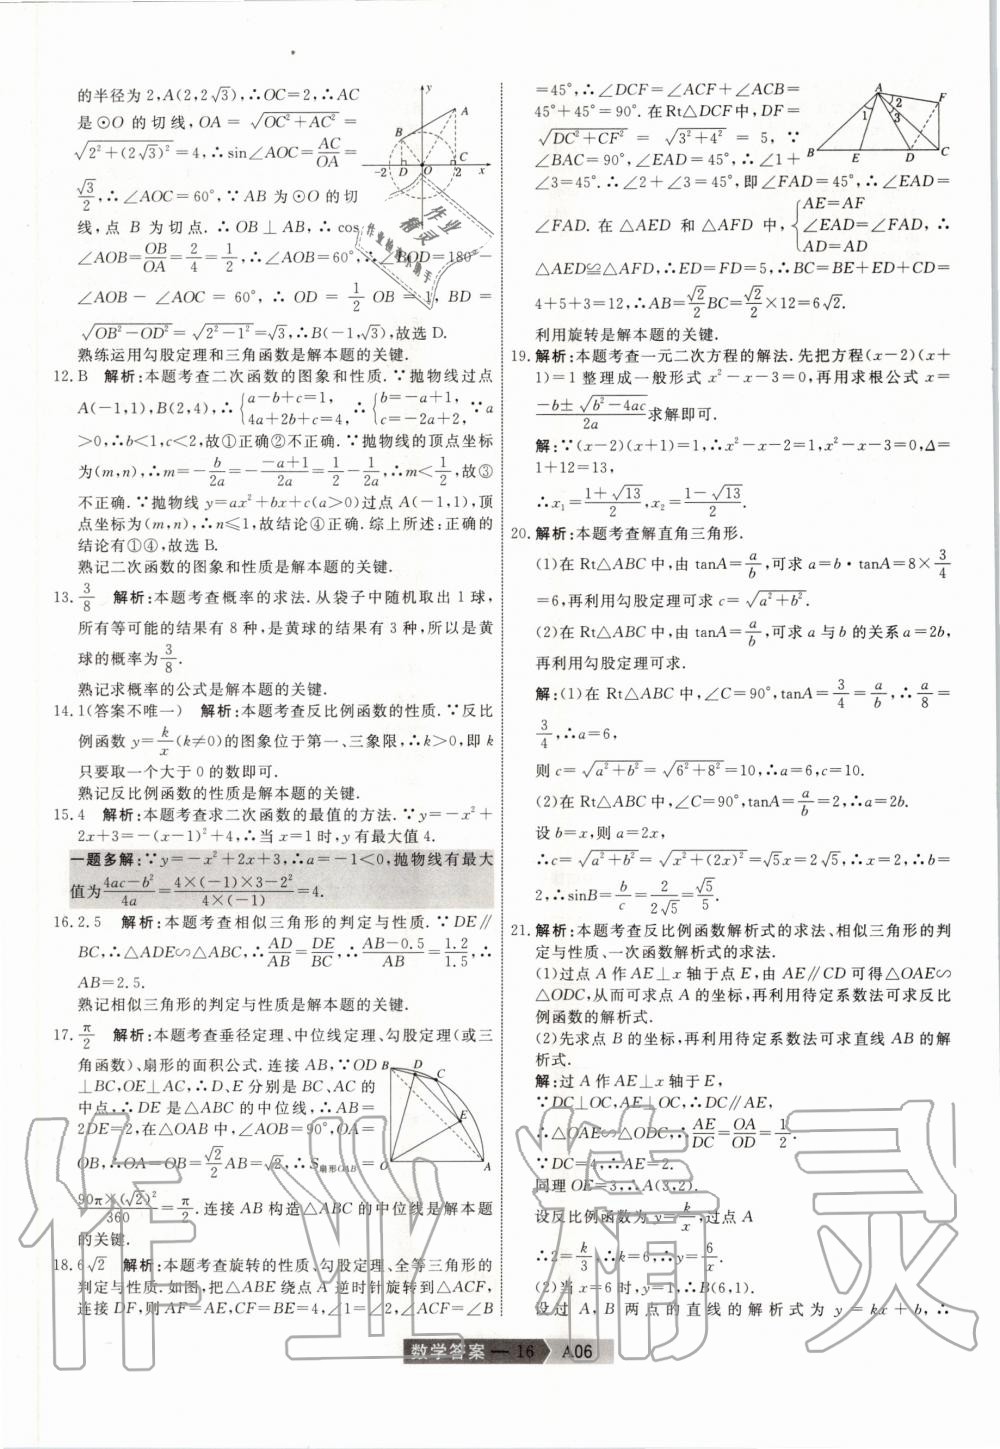 的半径为2,A(2,2√3),∴OC=2,∴AC
是⊙O的切线,OA=√(OC²+AC²)=
√(2²+(2√3)²)=4,∴sin∠AOC=AC/OA=
√3/2,∴∠AOC=60°,∵AB为⊙O的切
线,点B为切点.∴OB⊥AB,∴cos
∠AOB=OB/OA=2/4=1/2,∴∠AOB=60°,∴∠BOD=180°-
∠AOB-∠AOC=60°,∴OD=1/2 OB=1,BD=
√(OB²-OD²)=√(2²-1²)=√3,∴B(-1,√3),故选D.
熟练运用勾股定理和三角函数是解本题的关键.
12.B 解析:本题考查二次函数的图象和性质.∵抛物线过点
A(-1,1),B(2,4),∴{a-b+c=1, 4a+2b+c=4, ∴{b=-a+1, c=-2a+2, ∵a
>0,∴b<1,c<2,故①正确②不正确.∵抛物线的顶点坐标
为(m,n),∴m=-b/2a=-(-a+1)/2a=1/2-1/2a,∴m<1/2,故③
不正确.∵抛物线y=ax²+bx+c(a>0)过点A(-1,1),顶
点坐标为(m,n),∴n≤1,故结论④正确.综上所述:正确的
结论有①④,故选B.
熟记二次函数的图象和性质是解本题的关键.
13.3/8 解析:本题考查概率的求法.从袋子中随机取出1球,
所有等可能的结果有8种,是黄球的结果有3种,所以是黄
球的概率为3/8.
熟记求概率的公式是解本题的关键.
14.1(答案不唯一) 解析:本题考查反比例函数的性质.∵反比
例函数y=k/x(k≠0)的图象位于第一、三象限,∴k>0,即k
只要取一个大于0的数即可.
熟记反比例函数的性质是解本题的关键.
15.4 解析:本题考查求二次函数的最值的方法.∵y=-x²+
2x+3=-(x-1)²+4,∴当x=1时,y有最大值4.
一题多解:∵y=-x²+2x+3,∴a=-1<0,抛物线有最大
值为(4ac-b²)/4a=(4×(-1)×3-2²)/(4×(-1))=4.
16.2.5 解析:本题考查相似三角形的判定与性质.∵DE∥
BC,∴△ADE∽△ABC,∴AD/AB=DE/BC,∴(AB-0.5)/AB=1.2/1.5,∴
AB=2.5.
熟记相似三角形的判定与性质是解本题的关键.
17.π/2 解析:本题考查垂径定理、中位线定理、勾股定理(或三
角函数)、扇形的面积公式.连接AB,∵OD
⊥BC,OE⊥AC,∴D、E分别是BC、AC的
中点,∴DE是△ABC的中位线,∴AB=
2DE=2,在△AOB中,∠AOB=90°,OA=
OB,∴OA=OB=√2/2 AB=√2,∴S扇形OAB=
90π×(√2)²/360=π/2.连接AB构造△ABC的中位线是解本题
的关键.
18.6√2 解析:本题考查旋转的性质、勾股定理、全等三角形的
判定与性质.如图,把△ABE绕点A逆时针旋转到△ACF,
连接DF,则AF=AE,CF=BE=4,∠1=∠2,∠ACF=∠B
y
A
B
C
-2 D O 2 x
作业
精灵
作业检查小助手
B D C
E
O A
=45°,∴∠DCF=∠ACF+∠ACB=
45°+45°=90°.在Rt△DCF中,DF=
√(DC²+CF²)=√(3²+4²)=5,∵
∠BAC=90°,∠EAD=45°,∴∠1+
∠3=45°.∴∠2+∠3=45°,即∠FAD=45°,∴∠EAD=
∠FAD.在△AED和△AFD中,{AE=AF ∠EAD=∠FAD, AD=AD ∴
△AED≌△AFD,∴ED=FD=5,∴BC=BE+ED+CD=
4+5+3=12,∴AB=√2/2 BC=√2/2×12=6√2.
利用旋转是解本题的关键.
19.解析:本题考查一元二次方程的解法.先把方程(x-2)(x+
1)=1整理成一般形式x²-x-3=0,再用求根公式x=
(-b±√(b²-4ac))/2a求解即可.
解:∵(x-2)(x+1)=1,∴x²-x-2=1,x²-x-3=0,Δ=
1+12=13,
∴x₁=(1+√13)/2,x₂=(1-√13)/2.
20.解析:本题考查解直角三角形.
(1)在Rt△ABC中,由tanA=a/b,可求a=b·tanA=8×3/4
=6,再利用勾股定理可求c=√(a²+b²).
(2)在Rt△ABC中,由tanA=a/b,可求a与b的关系a=2b,
再利用勾股定理可求.
解:(1)在Rt△ABC中,∠C=90°,tanA=3/4=a/b,∴a/8=
3/4,∴a=6,
则c=√(a²+b²)=√(6²+8²)=10,∴a=6,c=10.
(2)在Rt△ABC中,∠C=90°,tanA=a/b=2,∴a=2b.
设b=x,则a=2x,
∴c=√(a²+b²)=√(x²+(2x)²)=√5x=2√5,∴x=2,∴b=
2,∴sinB=b/c=2/(2√5)=√5/5.
21.解析:本题考查反比例函数解析式的求法、相似三角形的判
定与性质、一次函数解析式的求法.
(1)过点A作AE⊥x轴于点E,由AE∥CD可得△OAE∽
△ODC,从而可求点A的坐标,再利用待定系数法可求反比
例函数的解析式.
(2)先求点B的坐标,再利用待定系数法可求直线AB的解
析式.
解:过A作AE⊥x轴于E,
∵DC⊥OC,AE⊥OC,∴DC∥AE,
∴△OAE∽△ODC,∴AE/DC=OA/OD=1/2.
∵DC=4,∴AE=2.
同理OE=3,∴A(3,2).
设反比例函数为y=k/x,过点A
∴2=k/3,∴k=6,∴y=6/x.
(2)当x=6时,y=1,∴B(6,1).
设过A,B两点的直线的解析式为y=kx+b,∴
A F
1 2
3
B E D C
作业精灵
数学答案 — 16 A06